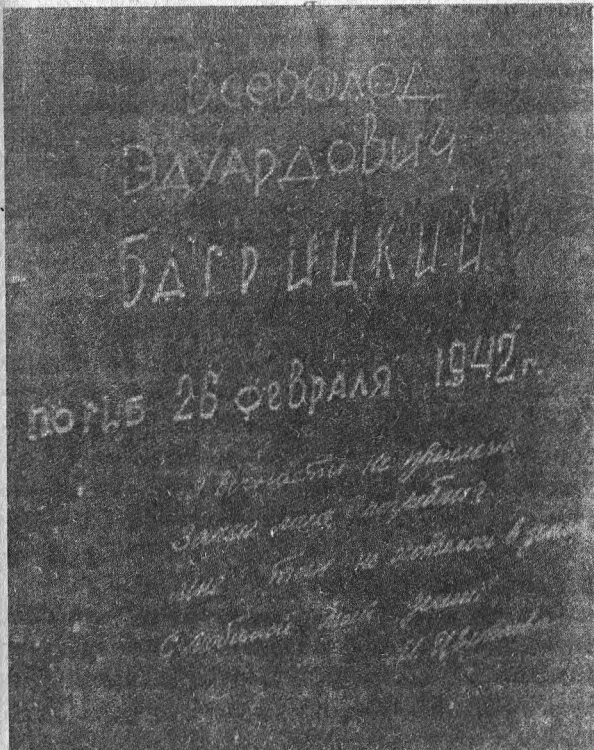 ВСЕВОЛОД
ЭДУАРДОВИЧ
БАГРИЦКИЙ
ПОГИБ 26 февраля 1942 г.
Я вечности не приемлю
Зачем меня погребли?
Мне так не хотелось в землю
С любимой моей земли
М. Цветаева